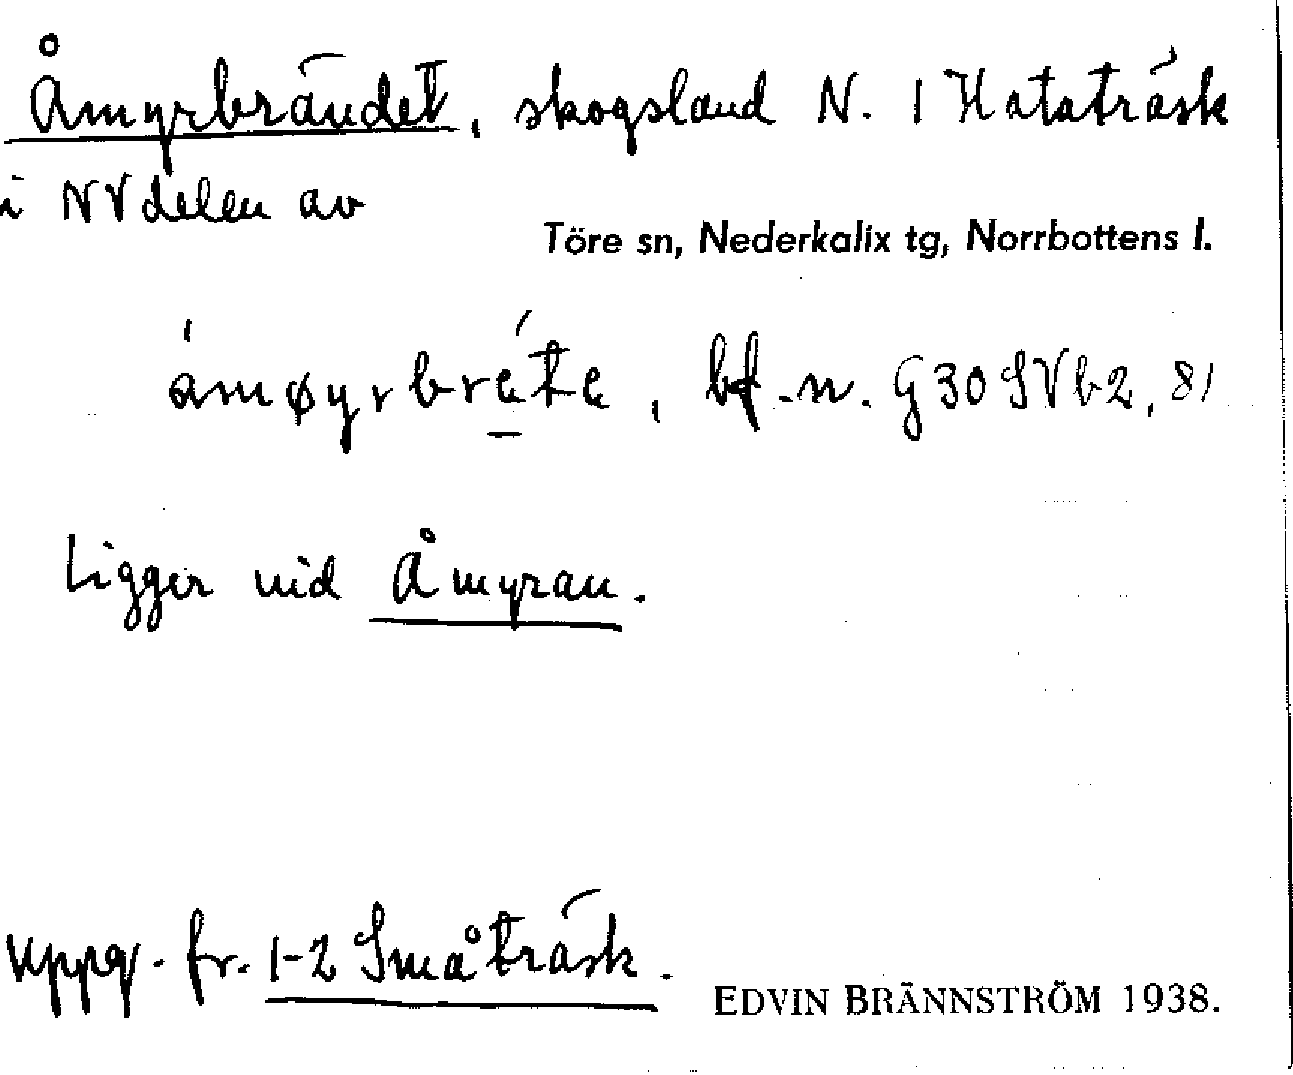 Åmyrbrändet, skogsland N. 1 Hataträsk
i NV delen av
Töre sn, Nederkalix tg, Norrbottens l.
åmøyrbrete, bf.-n. G30 SV b2, 81
Ligger vid Åmyran.
uppg. fr. 1-2 Småträsk.
EDVIN BRÄNNSTRÖM 1938.